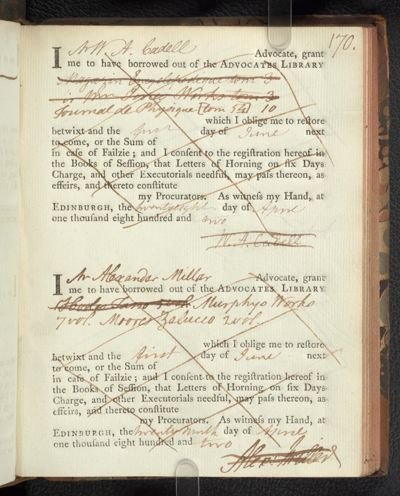 170.
I Mr W. A. Cadell Advocate, grant
me to have borrowed out of the ADVOCATES LIBRARY
Magazin Encyclopedique tom 3
Works tom 3
Journal de Physique [tom 54] 10
which I oblige me to reſtore
betwixt and the first day of June next
to come, or the Sum of
in caſe of Failzie; and I conſent to the regiſtration hereof in
the Books of Seſſion, that Letters of Horning on ſix Days
Charge, and other Executorials needful, may paſs thereon, as
effeirs, and thereto conſtitute
my Procurators. As witneſs my Hand, at
EDINBURGH, the twentyeight day of April
one thouſand eight hundred and two
W. A. Cadell
I Mr Alexander Millar Advocate, grant
me to have borrowed out of the ADVOCATES LIBRARY
Murphys Works
7 vol. Moores Zeluco 2 vol.
which I oblige me to reſtore
betwixt and the first day of June next
to come, or the Sum of
in caſe of Failzie; and I conſent to the regiſtration hereof in
the Books of Seſſion, that Letters of Horning on ſix Days
Charge, and other Executorials needful, may paſs thereon, as
effeirs, and thereto conſtitute
my Procurators. As witneſs my Hand, at
EDINBURGH, the twenty ninth day of April
one thouſand eight hundred and two
Alex Millar